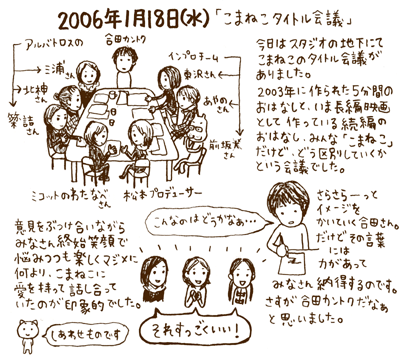 2006年1月18日(水)「こまねこタイトル会議」
アルバトロスの
三浦さん
北神さん
築諸さん
合田カントク
インプロチーム
東沢さん
あやのさん
前坂さん
ミコットのわたなべさん
松本プロデューサー
今日はスタジオの地下にて
こまねこのタイトル会議が
ありました。
2003年に作られた5分間の
おはなしと、いま長編映画
として作っている続編の
おはなし、みんな「こまねこ」
だけど、どう区別していくか
という会議でした。
意見をぶつけ合いながら
みなさん終始笑顔で
悩みつつも楽しくマジメに
何より、こまねこに
愛を持って話し合って
いたのが印象的でした。
しあわせものです
こんなのはどうかなぁ…
それすっごくいい!
さらさらーっと
イメージを
かいていく合田さん。
だけどその言葉
には
力があって
みなさん納得するのです。
さすが合田カントクだなぁ
と思いました。